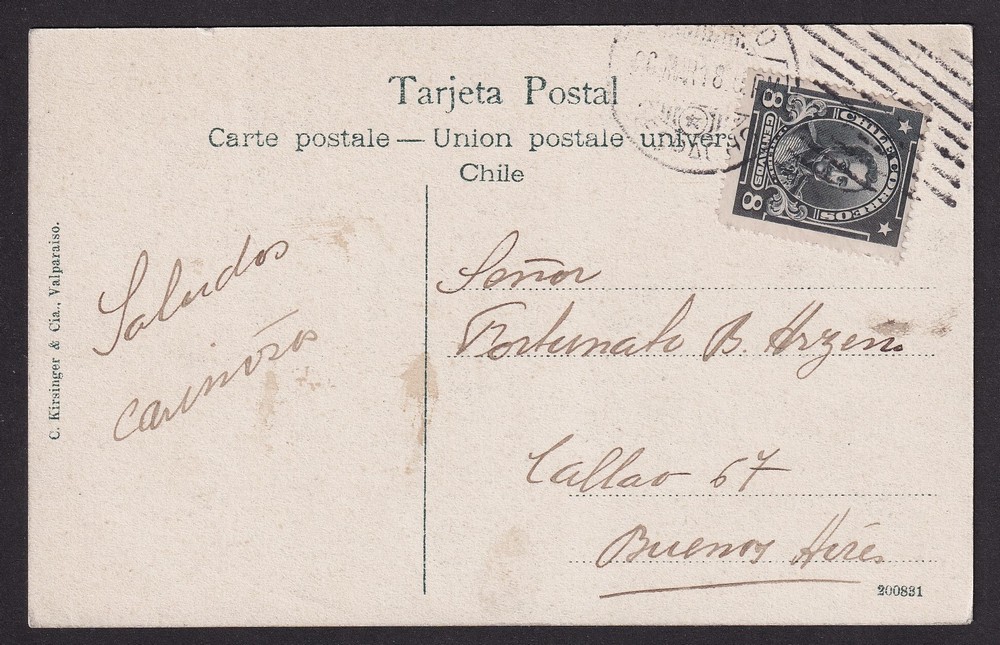 Tarjeta Postal
Carte postale — Union postale univers
Chile
CHILE CORREOS
8 CENTAVOS 8
Saludos
cariñosos
Señor
Fortunato B.
Callao 67
Buenos Aires
C. Kirsinger & Cia., Valparaiso.
200831